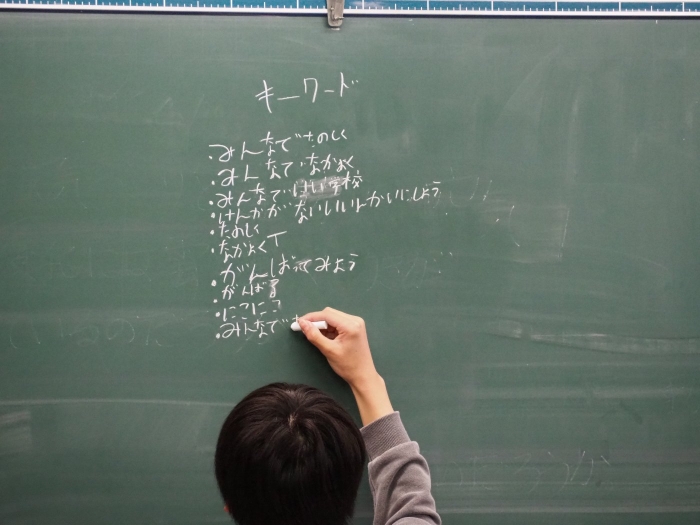 キーワード
・みんなでたのしく
・みんなでなかよく
・みんなで 学校
・けんかがないいいんかいにしよう
・たのしく
・なかよく
・がんばってみよう
・がんばる
・にこにこ
・みんなで